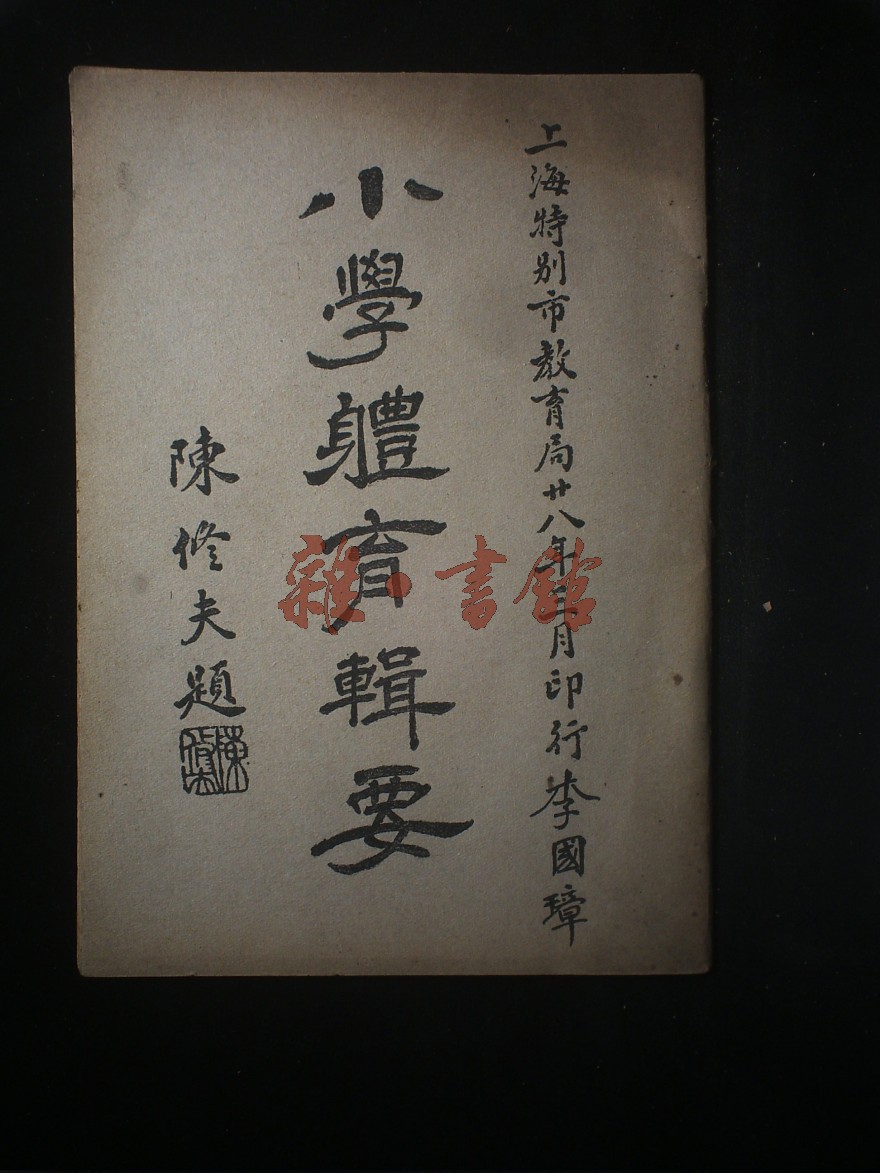 上海特别市教育局廿八年三月印行李國璋
小學體育輯要
陳修夫題
雜·書館